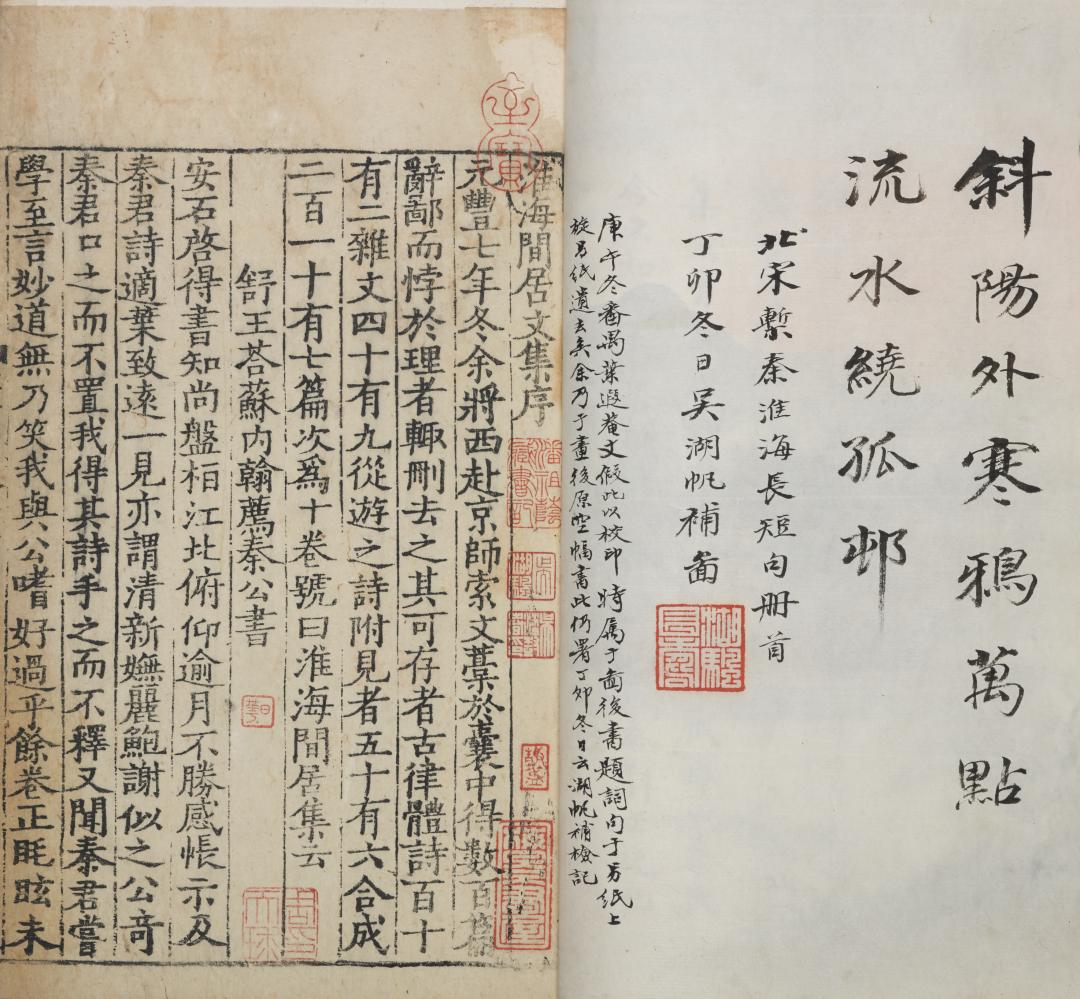 斜陽外寒鴉萬點
流水繞孤邨
北宋槧秦淮海長短句冊首
丁卯冬日吳湖帆補啚
庚午冬番禺葉遐菴丈假此以校印時屬于啚後書題詞句于另紙上
旋另紙遺去矣余乃于畫後原空幅書此仍署丁卯冬日云湖帆補檢記
淮海閒居文集序
元豐七年冬余將西赴京師索文藁於囊中得數百篇
辭鄙而悖於理者輒刪去之其可存者古律體詩百十
有二雜文四十有九從遊之詩附見者五十有六合成
二百一十有七篇次爲十卷號曰淮海閒居集云
舒王荅蘇內翰薦秦公書
安石啓得書知尚盤桓江北俯仰逾月不勝感悵示及
秦君詩適葉致遠一見亦謂清新嫵麗鮑謝似之公奇
秦君口之而不置我得其詩手之而不釋又聞秦君嘗
學至言妙道無乃笑我與公嗜好過乎餘卷正眊眩未
至寶
潘祖蔭藏書記